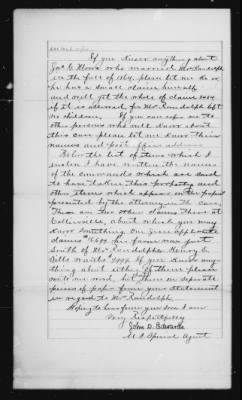 If you know anything about
Jas. G. Blow who married Mrs Randolph
in the fall of 1864, please let me know
he has a small claim himself
and will get the whole of claim
if it is allowed for Mrs Randolph left
no children. If you can refer me to
other persons who will know about
this case please let me know their
names and post office address
Below the list of items which I
make I have written the names
of the commands which are said
to have taken this property and
other items which appear in the papers
presented by the attorney in the case.
There are two other claims there at
about which you may
know something One Jesse Applewhite
claims his farm was just
south of Mrs Randolphs Henry C.
If you know any
thing about either of them please
write me word, but them on separate
pieces of paper from your statement
in regard to Mrs Randolph.
Hoping to hear from you soon I am
Very Respectfully
John D. Edwards
U.S. Special Agent